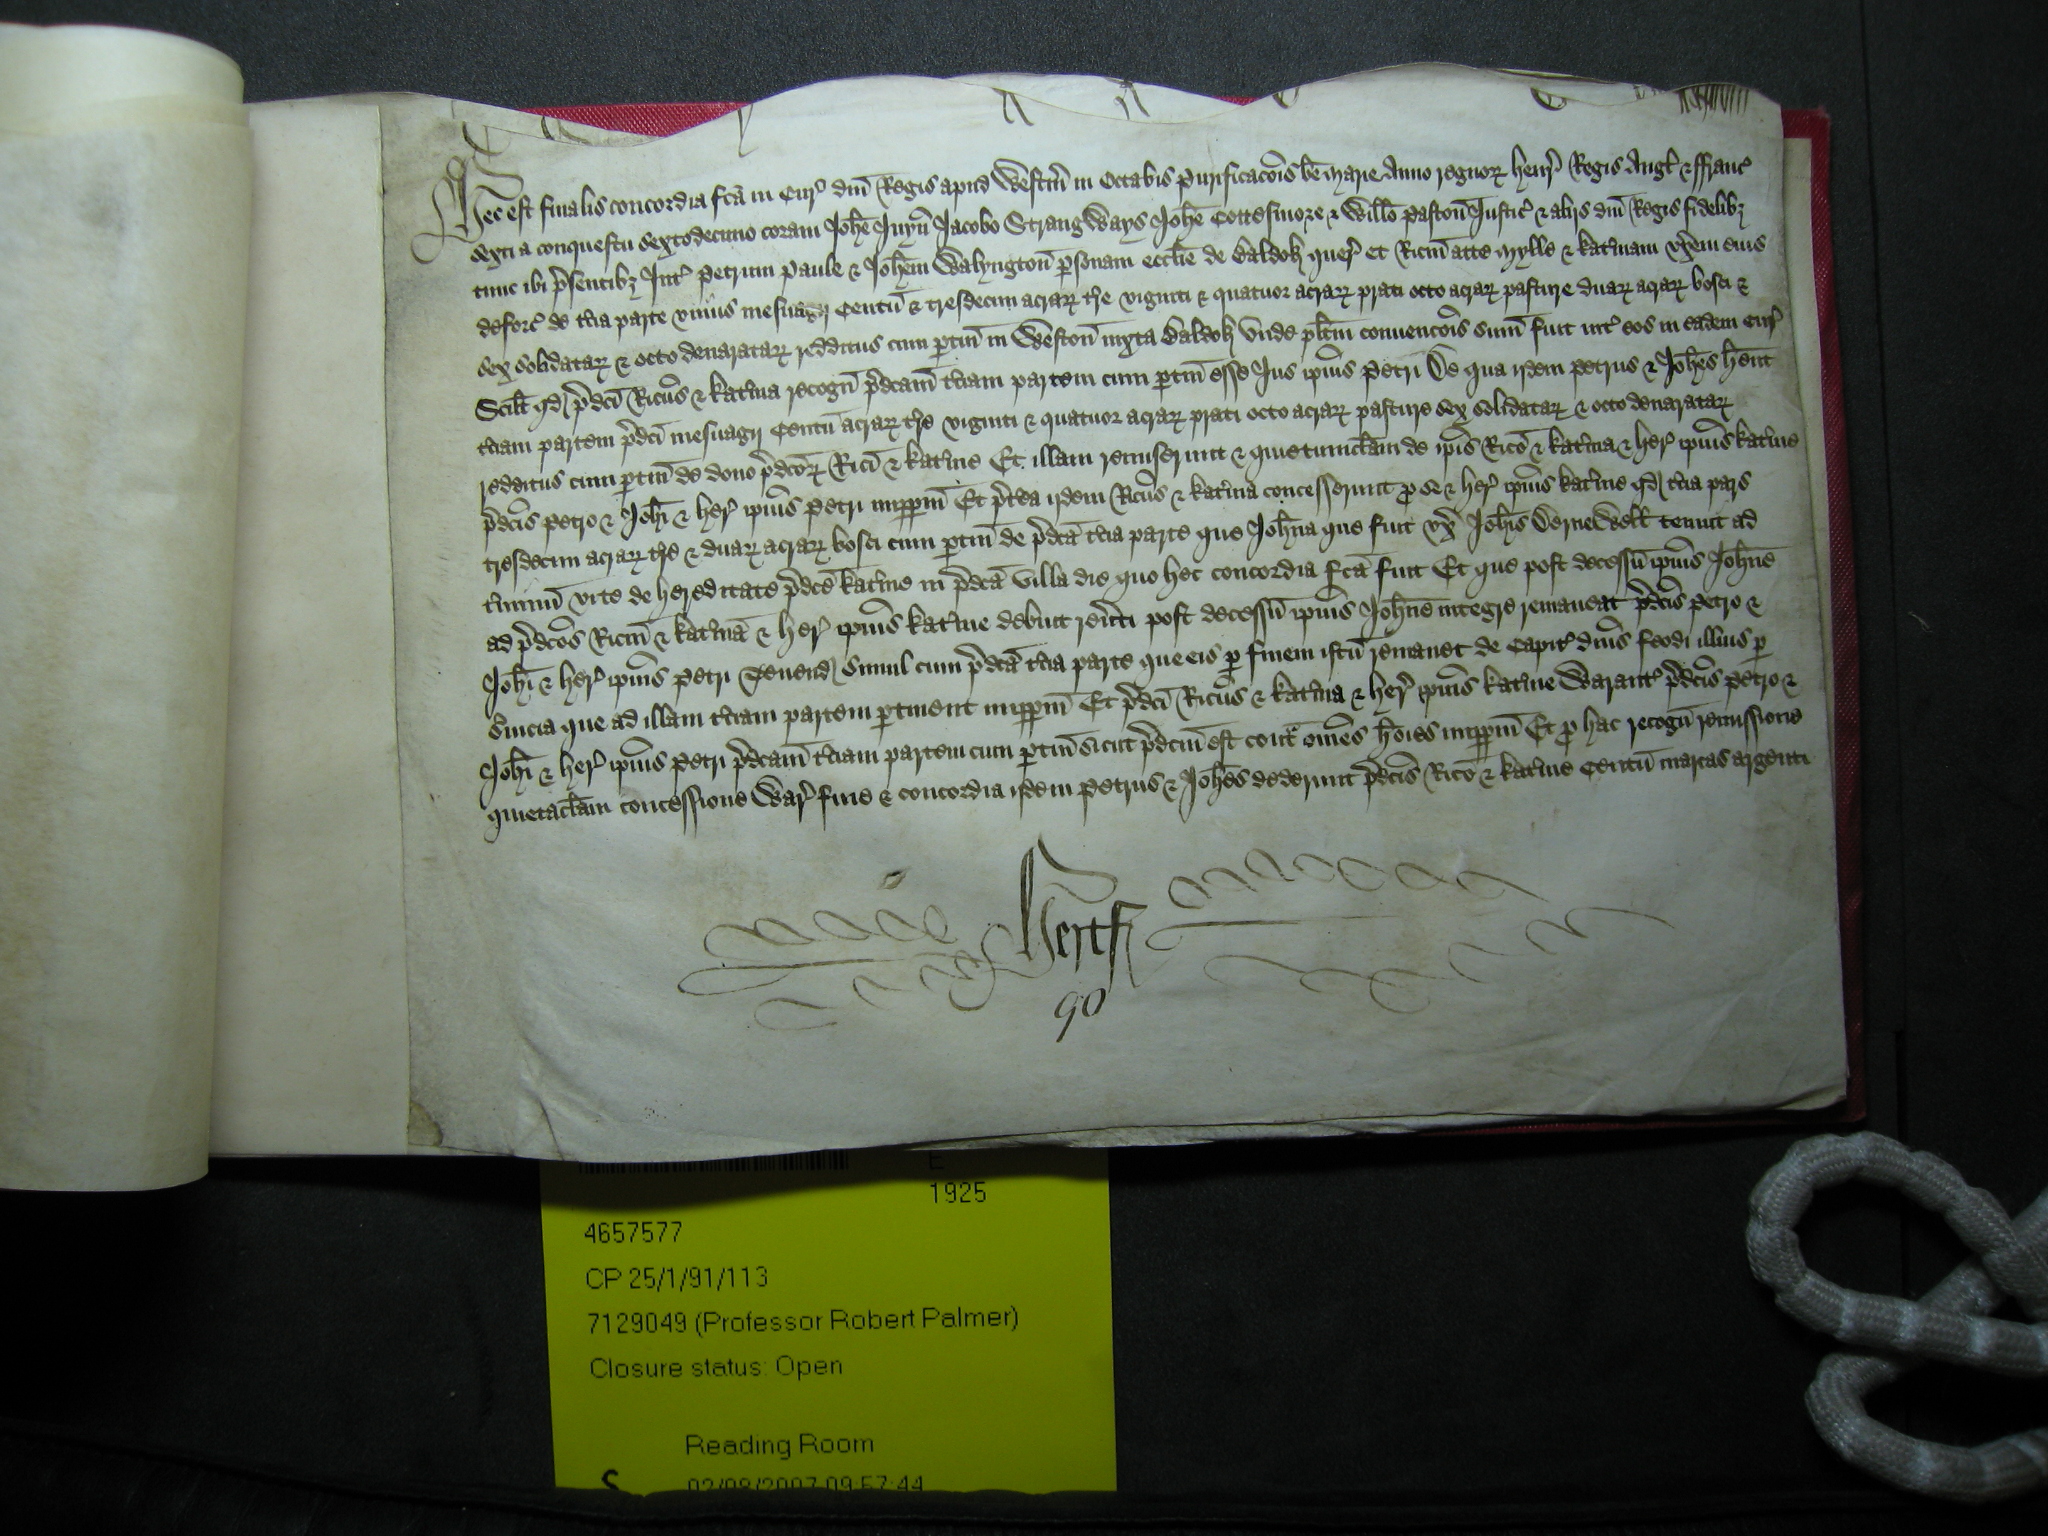 Hec est finalis concordia fcā in Cur' dnī Regis apud Westm̄ in Octabis Purificacōis bē Marie Anno regnor' Henr' Regis Angl' & ffranc'
sexti a conquestu sextodecimo coram Johē Juyn Jacobo Strangways Johē Cottesmore & Willo Paston Justic' & aliis dnī Regis fidelibȝ
tunc ibi p̄sentibȝ Int' Petrum Paule & Johem Walyngton p̱sonam ecclīe de Baldok quer' et Ricm̄ atte Mylle & Kat'inam vxem eius
deforc' de t'cia parte vnius mesuagij Centū & tresdecim acrar' t're viginti & quatuor acrar' prati octo acrar' pasture duar' acrar' bosci &
sex solidatar' & octo denaratar' redditus cum ptin̄ in Weston iuxta Baldok Vnde plītm convencōis sum̄ fuit int' eos in eadem Cur'
Scilt qd p̄dcī Ricus & Kat'ina recogn' p̄dcam t'ciam partem cum ptin̄ esse Jus ip̄ius Petri De qua ijdem Petrus & Johes hent
t'ciam partem p̄dcī mesuagij Centū acrar' t're viginti & quatuor acrar' prati octo acrar' pasture sex solidatar' & octo denaratar'
redditus cum ptin̄ de dono p̄dcor' Ricī & Kat'ine Et illam remiserunt & quietumclam' de ip̄is Ricō & Kat'ina & her' ip̄ius Kat'ine
p̄dcīs Petro & Johī & her' ip̄ius Petri imppm̄ Et p̄t'ea ijdem Ricus & Kat'ina concesserunt p se & her' ip̄ius Kat'ine qd t'cia pars
tresdecim acrar' t're & duar' acrar' bosci cum ptin̄ de p̄dcā t'cia parte que Johna que fuit vx' Johis Bernewell tenuit ad
t'minū vite de hereditate p̄dcē Kat'ine in p̄dcā villa die quo hec concordia fcā fuit Et que post decessū ip̄ius Johne
ad p̄dcos Ricm̄ & Kat'inā & her' ip̄ius Kat'ine debuit rev'ti post decessū ip̄ius Johne integre remaneat p̄dcīs Petro &
Johī & her' ip̄ius Petri Tenend' simul cum p̄dcā t'cia parte que eis p finem istū remanet de Capit' dnīs feodi illius p
s'uicia que ad illam t'ciam partem ptinent imppm̄ Et p̄dcī Ricus & Kat'ina & her' ip̄ius Kat'ine Warant' p̄dcīs Petro &
Johī & her' ip̄ius Petri p̄dcam t'ciam partem cum ptin̄ sicut p̄dcm̄ est contᵃ om̄es hoīes imppm̄ Et p hac recogn' remissione
quietaclam' concessione War' fine & concordia ijdem Petrus & Johes dederunt p̄dcīs Ricō & Kat'ine Centū marcas argenti
Hertf
90
E
1925
4657577
CP 25/1/91/113
7129049 (Professor Robert Palmer)
Closure status: Open
Reading Room
S 02/08/2007 09:57:44